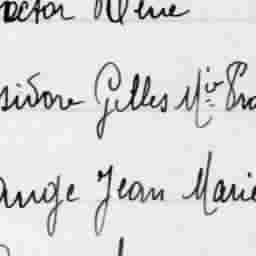 octor Rene
sidore Gilles Mie Pro
ange Jean Marie